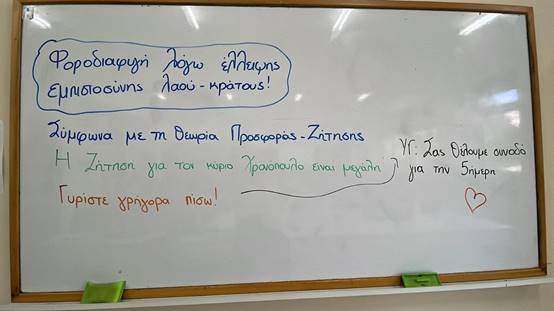 Φοροδιαφυγή λόγω έλλειψης
εμπιστοσύνης λαού - κράτους!
Σύμφωνα με τη Θεωρία Προσφοράς - Ζήτησης
Η Ζήτηση για τον κύριο Χρονόπουλο είναι μεγάλη
Γυρίστε γρήγορα πίσω!
ΥΓ: Σας θέλουμε συνοδό
για την 5ήμερη